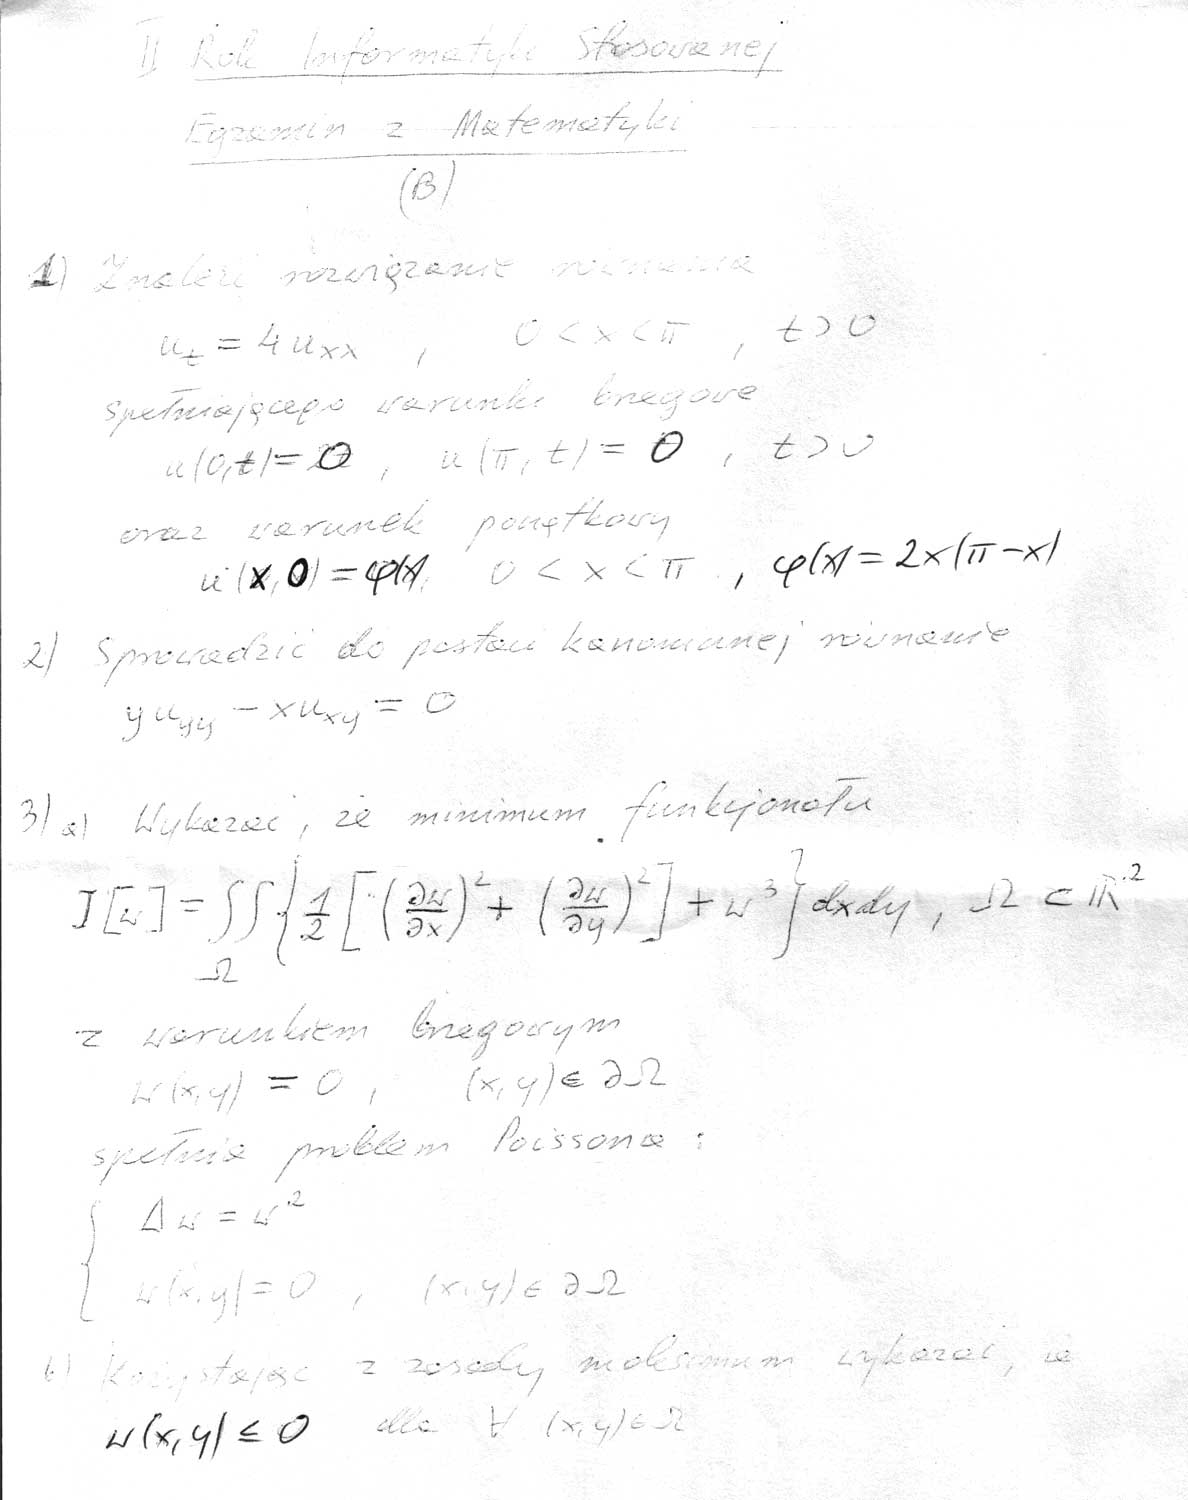 II Rok Informatyki Stosowanej
Egzamin z Matematyki
(B)
1) Znaleźć rozwiązanie równania
u_t = 4u_xx , 0 < x < π , t > 0
spełniającego warunki brzegowe
u(0,t) = 0 , u(π,t) = 0 , t > 0
oraz warunek początkowy
u(x,0) = φ(x), 0 < x < π , φ(x) = 2x(π-x)
2) Sprowadzić do postaci kanonicznej równanie
y u_yy - x u_xy = 0
3) a) Wykazać, że minimum funkcjonału
I[w] = ∬_Ω { 1/2 [ (∂w/∂x)² + (∂w/∂y)² ] + w³ } dxdy , Ω ⊂ ℝ²
z warunkiem brzegowym
w(x,y) = 0 , (x,y) ∈ ∂Ω
spełnia problem Poissona :
{ Δw = w²
w(x,y) = 0 , (x,y) ∈ ∂Ω
b) Korzystając z zasady maksimum wykazać, że
w(x,y) ≤ 0 dla ∀ (x,y) ∈ Ω